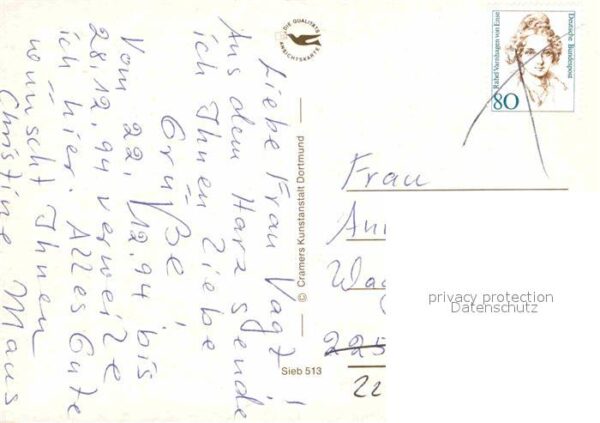 Liebe Frau Vagt!
Aus dem Harz sende
ich Ihnen liebe
Grüße!
Vom 22.12.94 bis
28.12.94 verweile
ich hier. Alles Gute
wünscht Ihnen
Christine Maus
DIE QUALITÄTS
ANSICHTSKARTE
© Cramers Kunstanstalt Dortmund
Sieb 513
Rahel Varnhagen von Ense
Deutsche Bundespost
80
Frau
An
Wa
225
22
privacy protection
Datenschutz